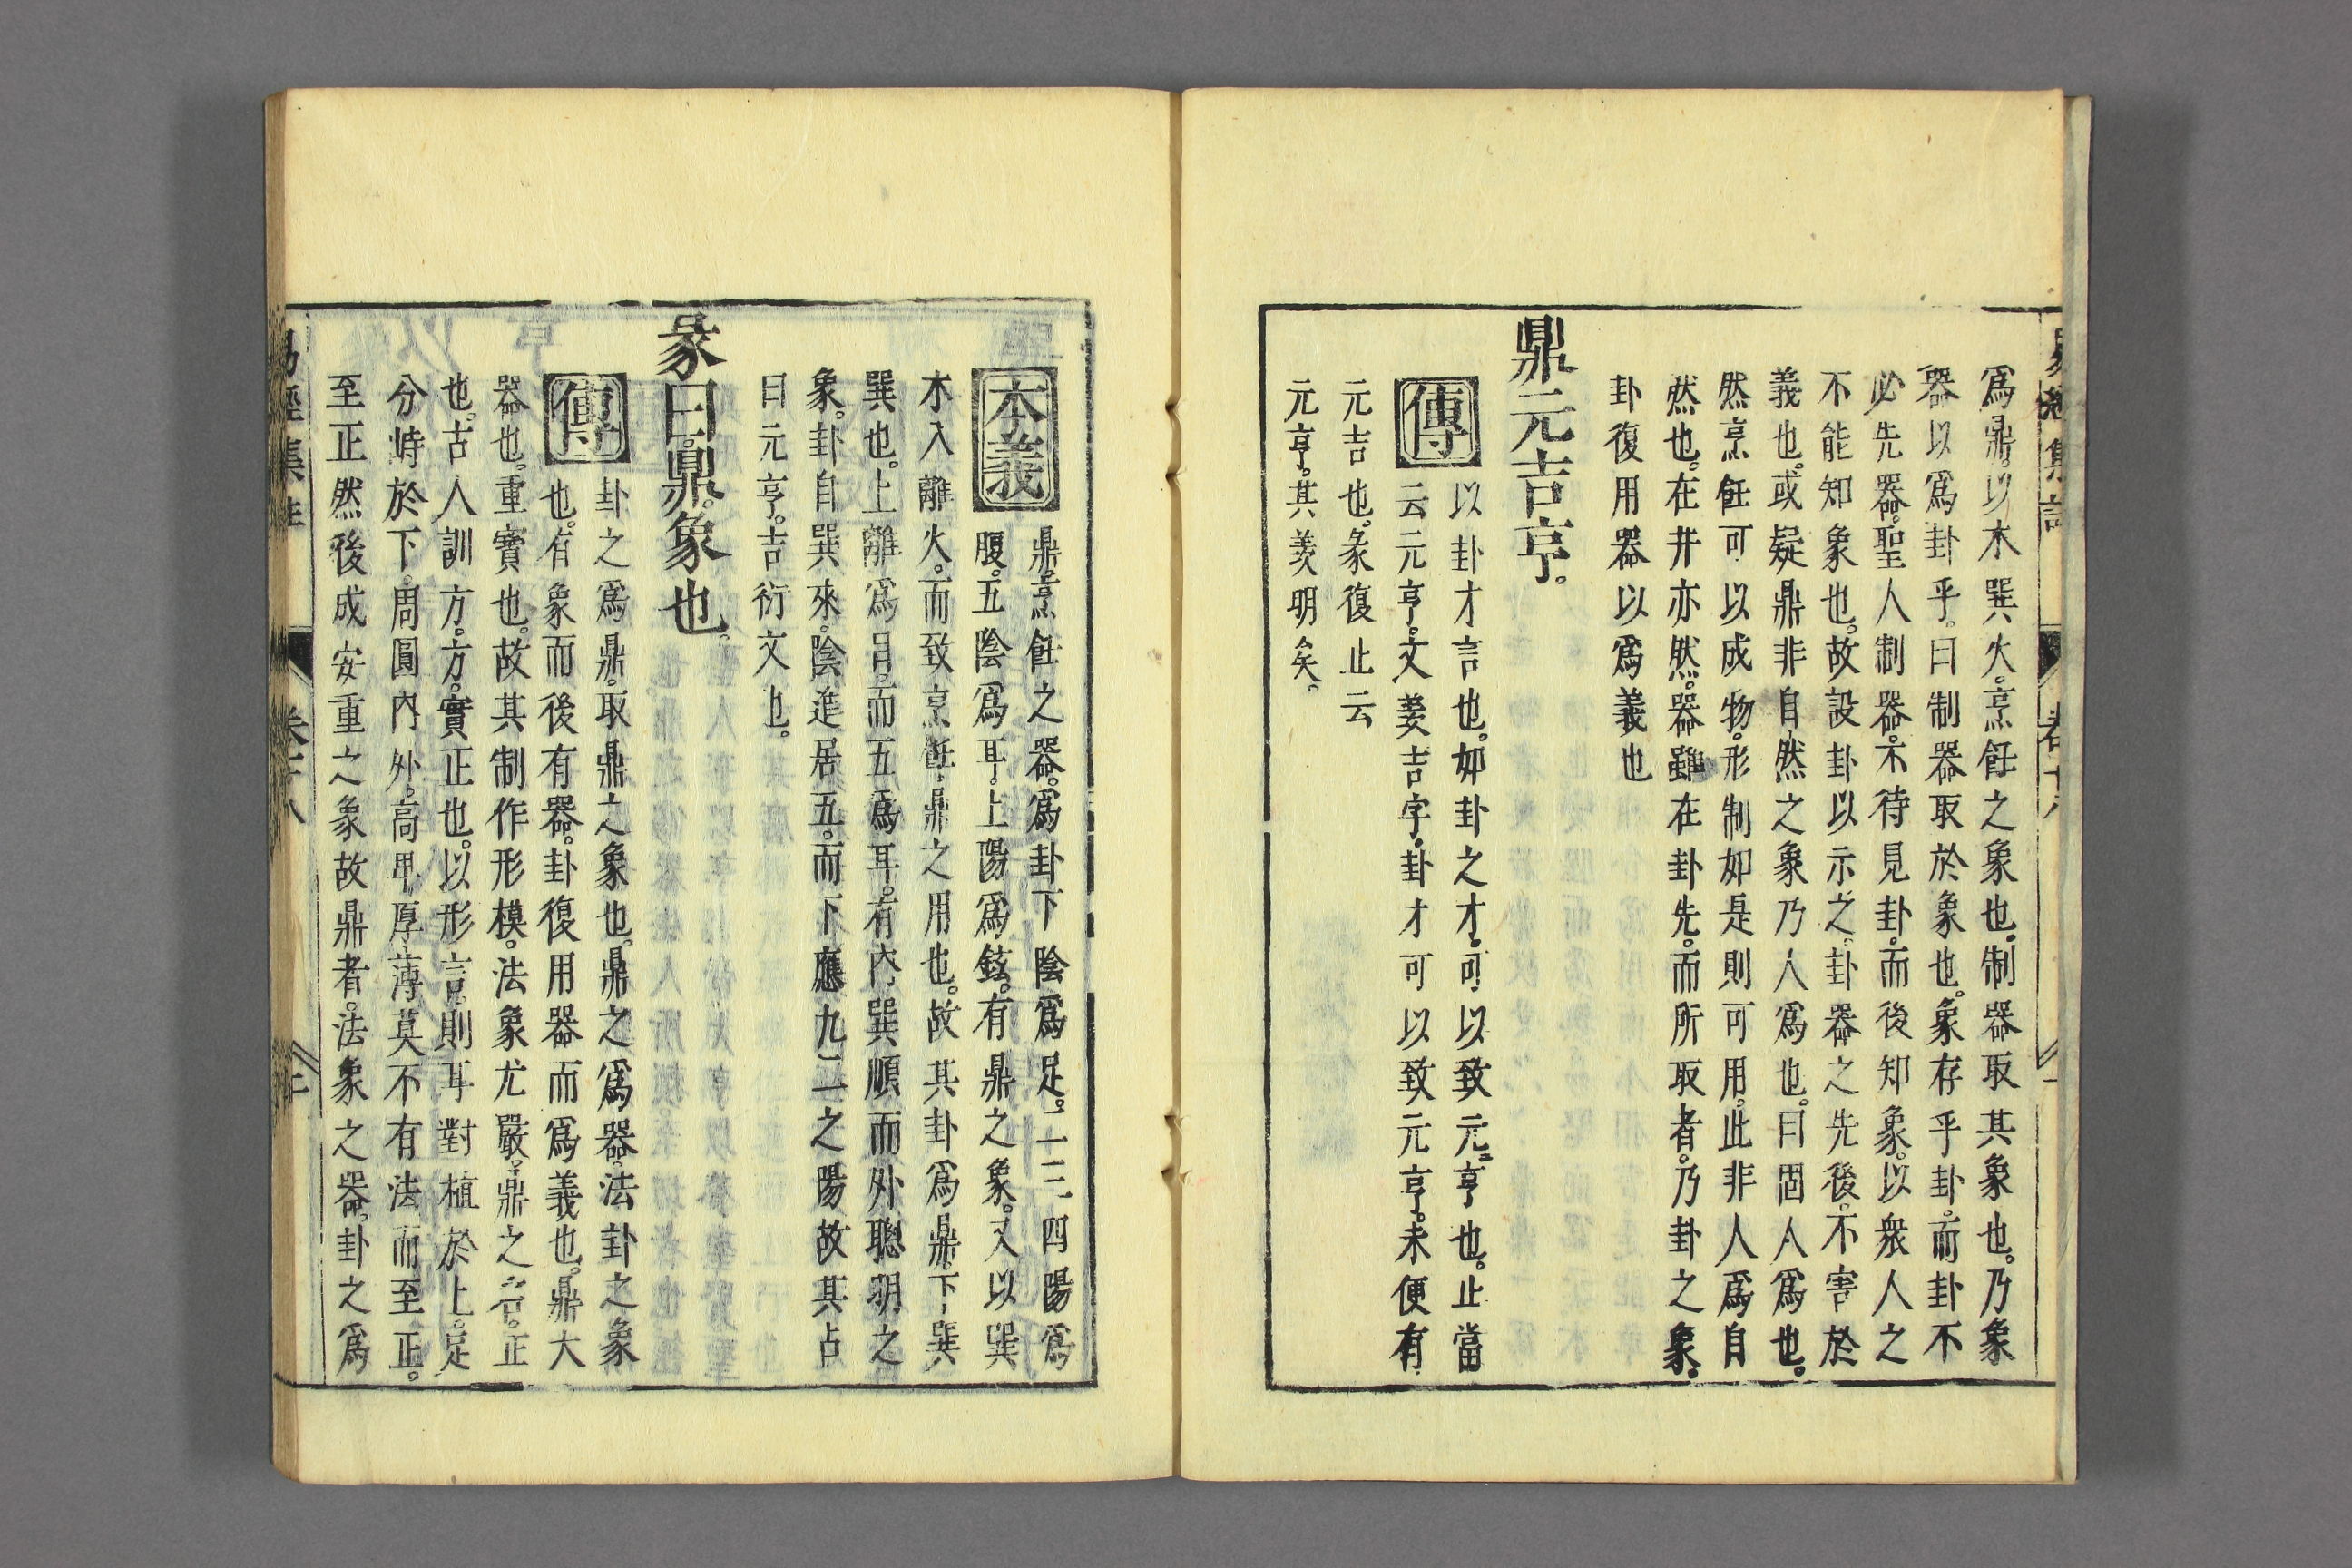 爲鼎。以木巽火。烹飪之象也。制器取其象也。乃象
器以爲卦乎。曰制器取於象也。象存乎卦。而卦不
必先器。聖人制器。不待見卦。而後知象。以衆人之
不能知象也。故設卦以示之。卦器之先後。不害於
義也。或疑鼎非自然之象乃人爲也。曰固人爲也。
然烹飪可以成物。形制如是則可用。此非人爲自
然也。在井亦然。器雖在卦先。而所取者。乃卦之象。
卦復用器以爲義也
鼎元吉亨。
傳 以卦才言也。如卦之才。可以致元亨也。止當
云元亨。文羨吉字。卦才可以致元亨。未便有
元吉也。彖復止云
元亨。其羨明矣。
本義 鼎。烹飪之器。爲卦下陰爲足。二三四陽爲
腹。五陰爲耳。上陽爲鉉。有鼎之象。又以巽
木入離火。而致烹飪。鼎之用也。故其卦爲鼎。下巽
巽也。上離爲目。而五爲耳。有內巽順而外聰明之
象。卦自巽來。陰進居五。而下應九二之陽故其占
曰元亨。吉衍文也。
彖曰鼎。象也。
傳 卦之爲鼎。取鼎之象也。鼎之爲器。法卦之象
也。有象而後有器。卦復用器而爲義也。鼎大
器也。重寶也。故其制作形模。法象尤嚴。鼎之名。正
也。古人訓方。方。實正也。以形言則耳對植於上。足
分峙於下。周圓內外。高卑厚薄莫不有法而至正。
至正然後成安重之象故鼎者。法象之器。卦之爲
易經集註 卷十八